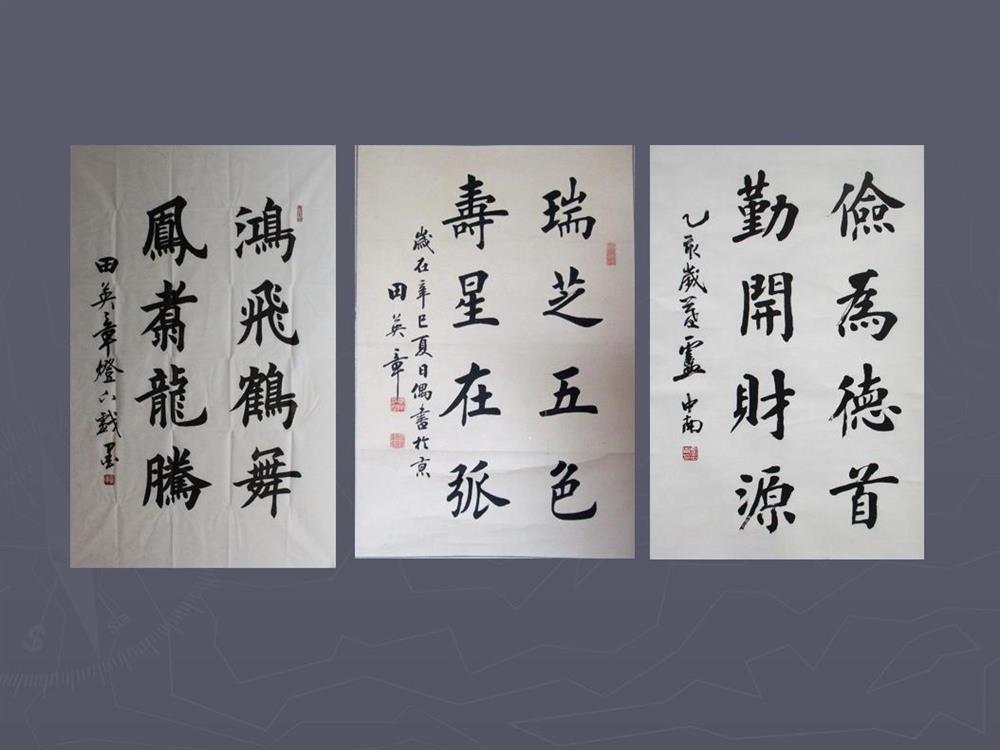 鴻飛鶴舞
鳳翥龍騰
田英章燈下戲墨
瑞芝五色
壽星在弧
歲在辛巳夏日偶書於京
田英章
儉為德首
勤開財源
乙亥歲